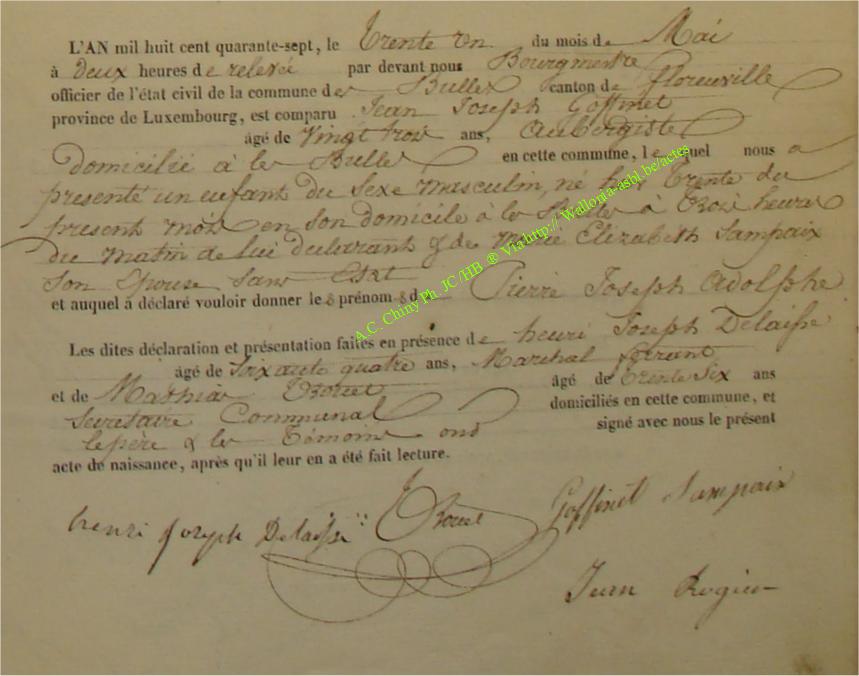 L'AN mil huit cent quarante-sept, le trente un du mois de Mai
à deux heures de relevé par devant nous Bourgmestre
officier de l'état civil de la commune de Bulles canton de florenville
province de Luxembourg, est comparu Jean Joseph Goffinet
âgé de vingt trois ans, aubergiste
domicilié à les Bulles en cette commune, lequel nous a
presenté un enfant du sexe masculin, né le trente du
present mois en son domicile à les Bulles à trois heures
du matin de lui declarant & de Marie Elizabeth Sampaix
son Epouse sans Etat
et auquel à déclaré vouloir donner les prénoms de Pierre Joseph Adolphe
Les dites déclaration et présentation faites en présence de henri Joseph Delaisse
âgé de soixante quatre ans, Marechal ferrant
et de Mathias âgé de trente six ans
Secretaire Communal domiciliés en cette commune, et
le père & les Témoins ont signé avec nous le présent
acte de naissance, après qu'il leur en a été fait lecture.
henri joseph Delaisse Goffinet Sampaix
A.C. Chiny Ph. JC/HB ® Via http://Wallonia-asbl.be/actes